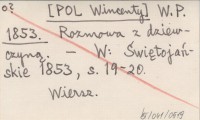 o?
[POL Wincenty] W.P.
1853. Rozmowa z dziew-
czyną. – W: Świętojań-
skie 1853, s. 19-20.
Wiersz.